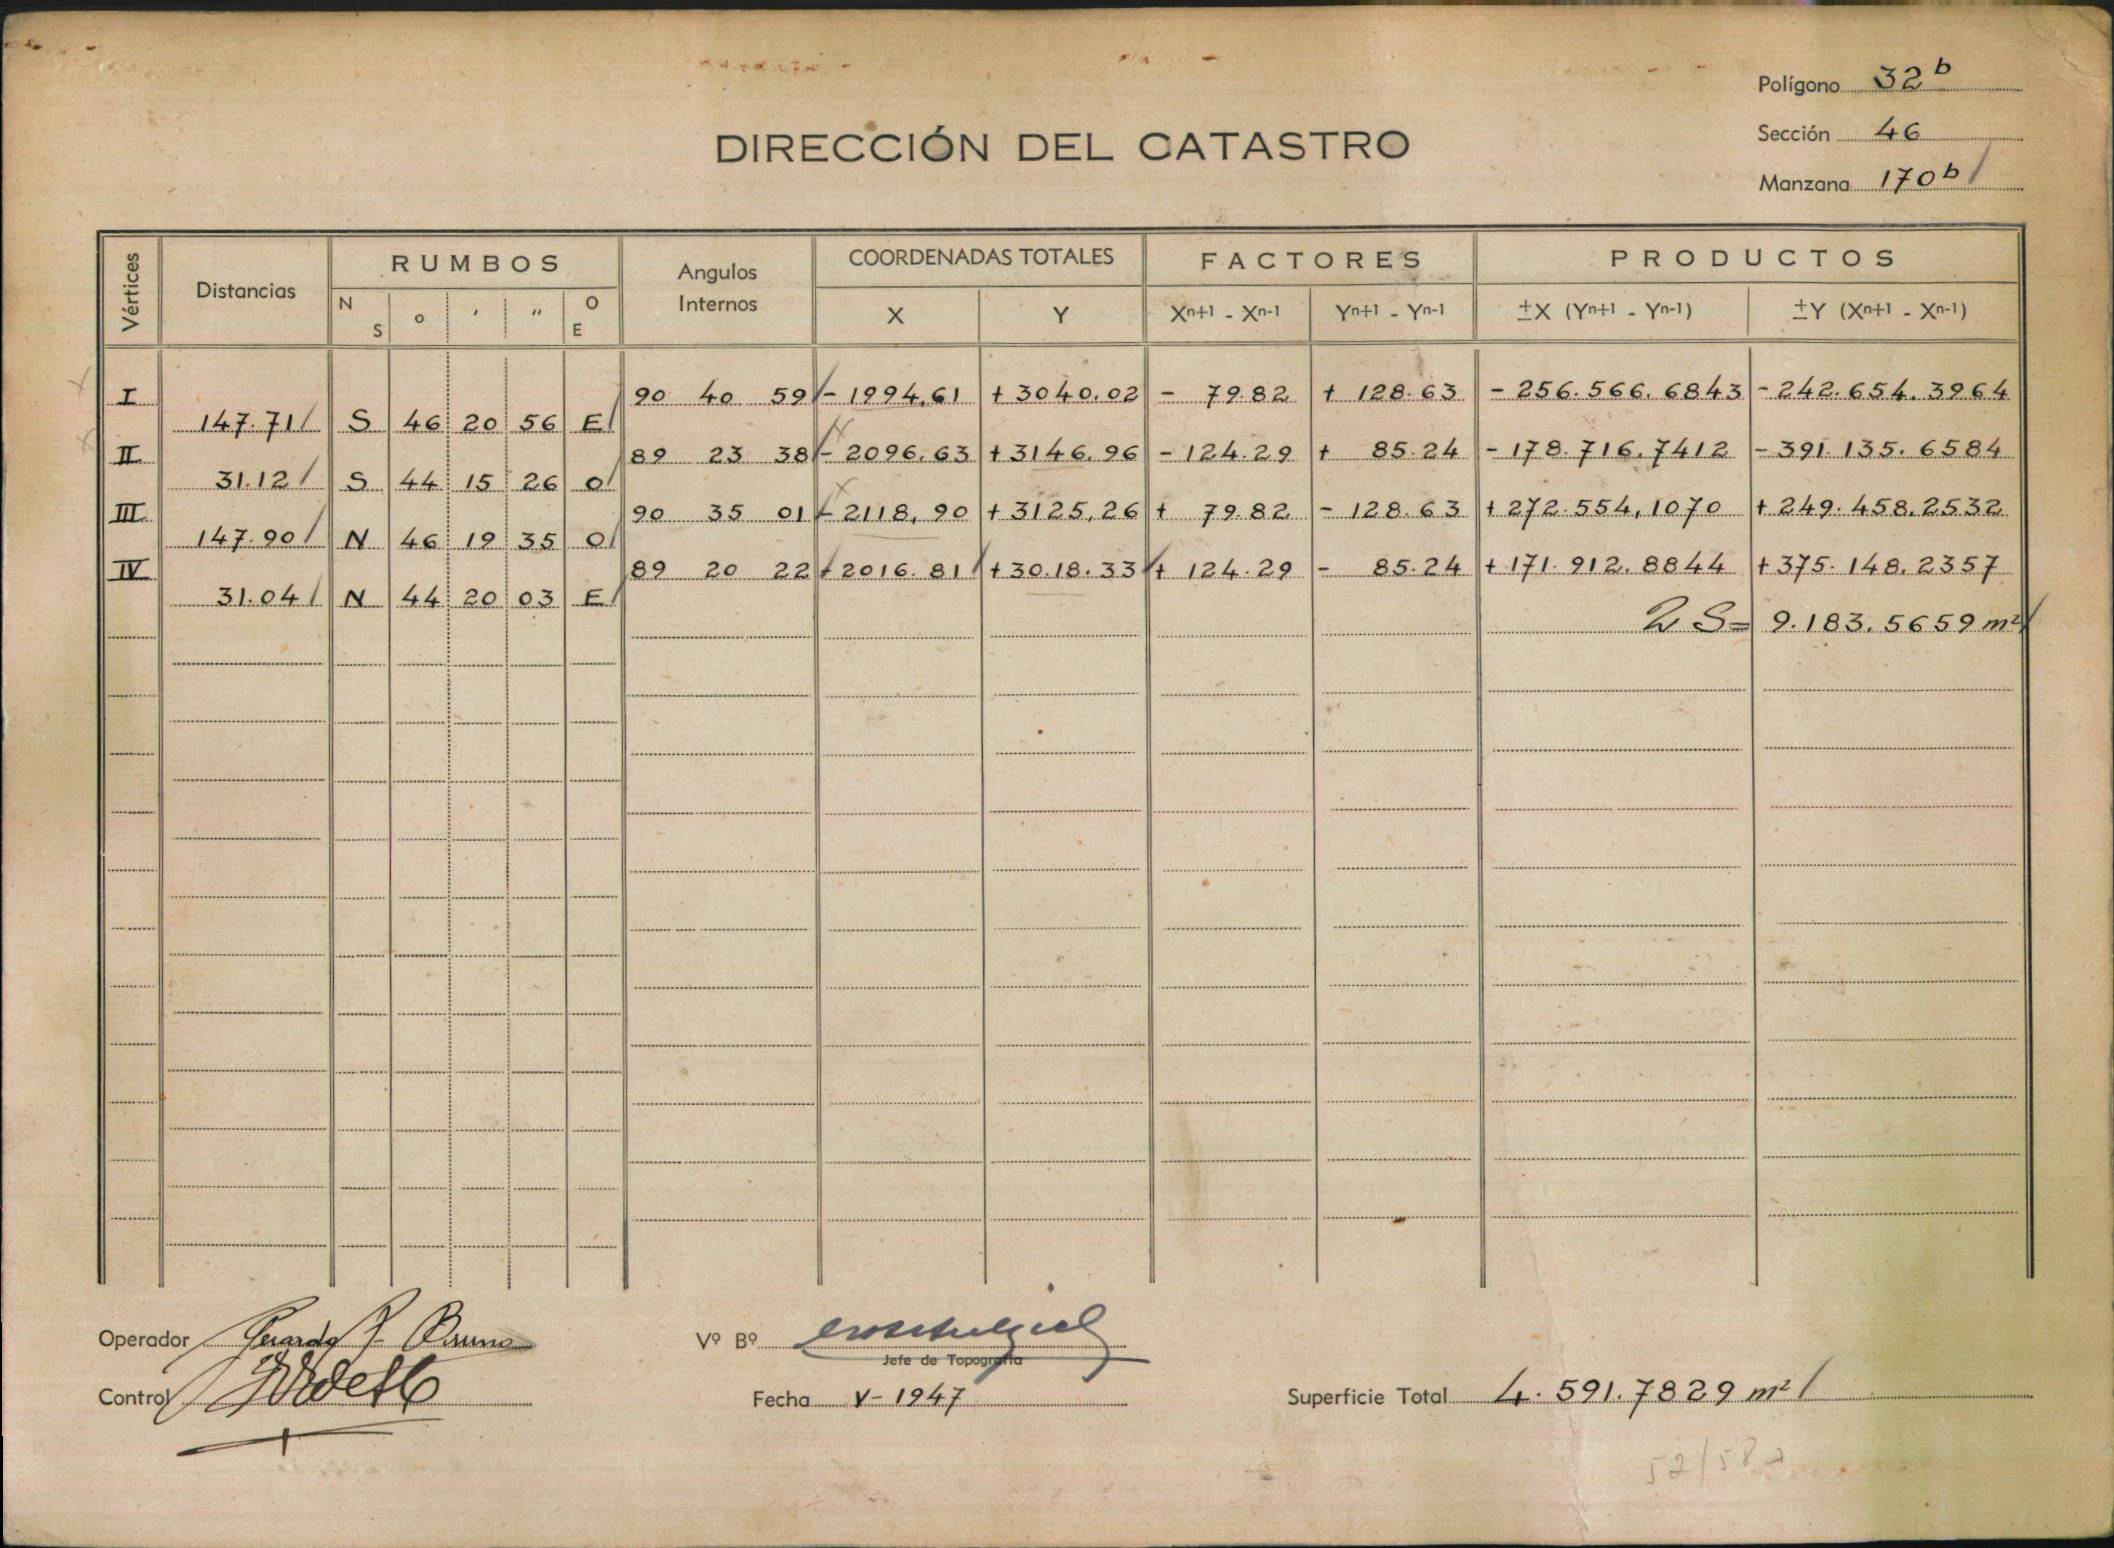 Polígono 32 b
DIRECCIÓN DEL CATASTRO
Sección 46
Manzana 170 b /
Vértices Distancias RUMBOS Angulos Internos COORDENADAS TOTALES FACTORES PRODUCTOS
N S o ′ ″ O E X Y Xn+1 - Xn-1 Yn+1 - Yn-1 ±X (Yn+1 - Yn-1) ±Y (Xn+1 - Xn-1)
I 90 40 59 / - 1994,61 + 3040,02 - 79.82 + 128.63 - 256.566,6843 - 242.654,3964
147.71 / S 46 20 56 E /
II 89 23 38 / - 2096,63 + 3146,96 - 124.29 + 85.24 - 178.716,7412 - 391.135,6584
31.12 / S 44 15 26 O /
III 90 35 01 / - 2118,90 + 3125,26 + 79.82 - 128.63 + 272.554,1070 + 249.458,2532
147.90 / N 46 19 35 O /
IV 89 20 22 / - 2016.81 / + 30.18.33 / + 124.29 - 85.24 + 171.912,8844 + 375.148,2357
31.04 / N 44 20 03 E /
2 S = 9.183,5659 m² /
Operador Gerardo Bruno
Vº Bº
Jefe de Topografía
Control
Fecha V - 1947
Superficie Total 4.591.7829 m² /